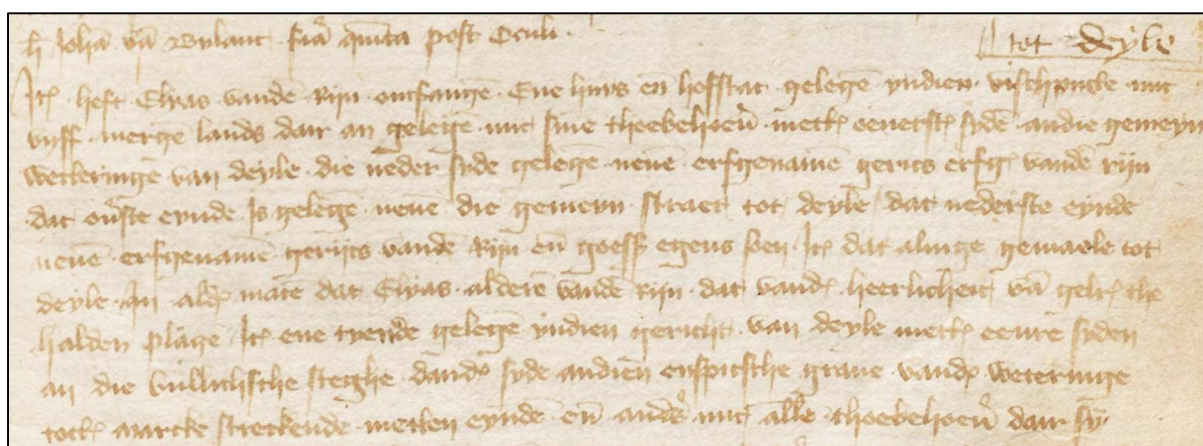 h Johā vā Bylant fiā quīta post Oculi
tot deyle
Itē heft Elyas vandē Rijn ontfangē Ene huys eñ hofstat gelegē yndien vischpoicke mit
vyff mergē lands dair an gelegē mit sine thoebehoerē mettē eenerstē sydē andie gemeyn
weteringē van deyle die neder syde gelegē nevē erfgenamē gerits erfg vandē rijn
dat ouste eynde Is gelegē nevē die gemeyn straet tot deyle dat nederste eynde
nevē erfgenamē gerijts vandē Rijn eñ goess egens soen Itē dat alinge gemaele tot
deyle In aldē matē dat Elyas alderē vandē rijn dat vandē heerlicheit vā gelrē the
halden plagē Itē ene tyende gelegē yndien gericht van deyle mettē eenre syden
an die bullichsche steghe dandē syde andien enspicsche grave vandē weteringe
totē marcke streckende metten eyndē eñ andē mit alle thoebehoerē dair sy